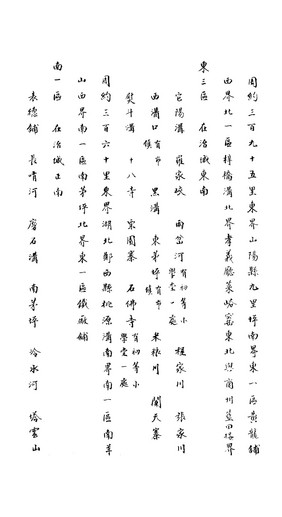 周約三百九十五里東界山陽縣九里坪南界東一區黃龍鋪
西界北一區梓橋溝北界孝義廳菜峪窰東北與商州藍田接界
東三區 在治城東南
宏陽溝 羅家峧 西岔河有初等小學堂一處 程家川 張家川
西溝口有市候 黑溝 東茅坪有市候 米粮川 闖天寨
熨斗溝 十八寺 寨園寨 石佛寺有初等小學堂一處
周約三百六十里東界湖北鄖西縣桃源溝南界南一區南茅
山西界南一區南茅坪北界東一區鐵厰鋪
南一區 在治城正南
表德鋪 長哨河 磨石溝 南茅坪 冷水河 塔雲山